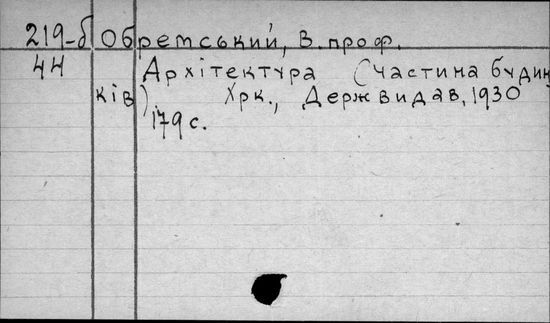 219-б Обремський, В. проф.
44 Архітектура (частина будин
ків). Хрк., Держвидав, 1930
179 с.